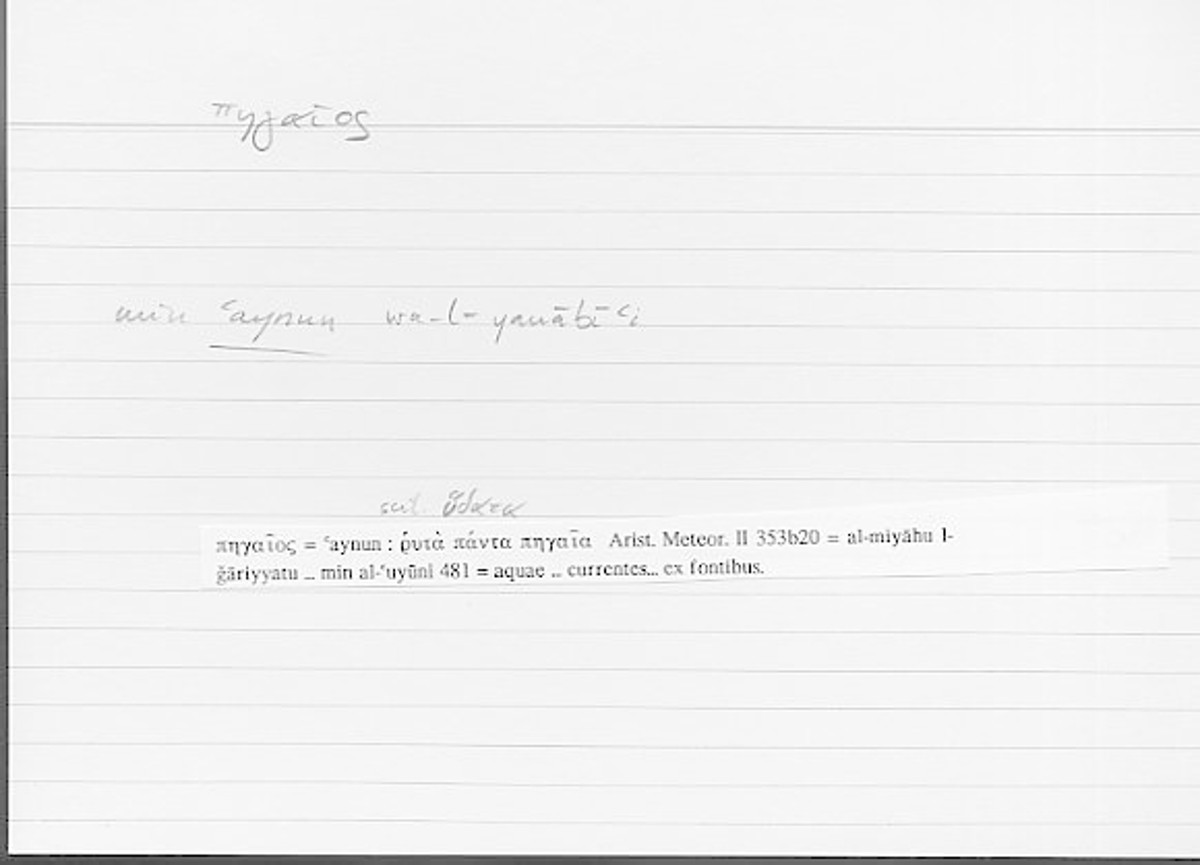 πηγαῖος
min ʿaynun wa-l-yanābīʿi
scil. ὕδατα
πηγαῖος = ʿaynun : ῥυτὰ πάντα πηγαῖα Arist. Meteor. II 353b20 = al-miyāhu l-
ǧāriyyatu .. min al-ʿuyūni 481 = aquae .. currentes... ex fontibus.